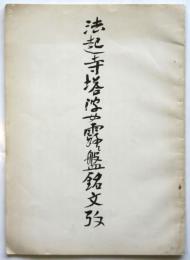 法起寺塔婆露盤銘文攷